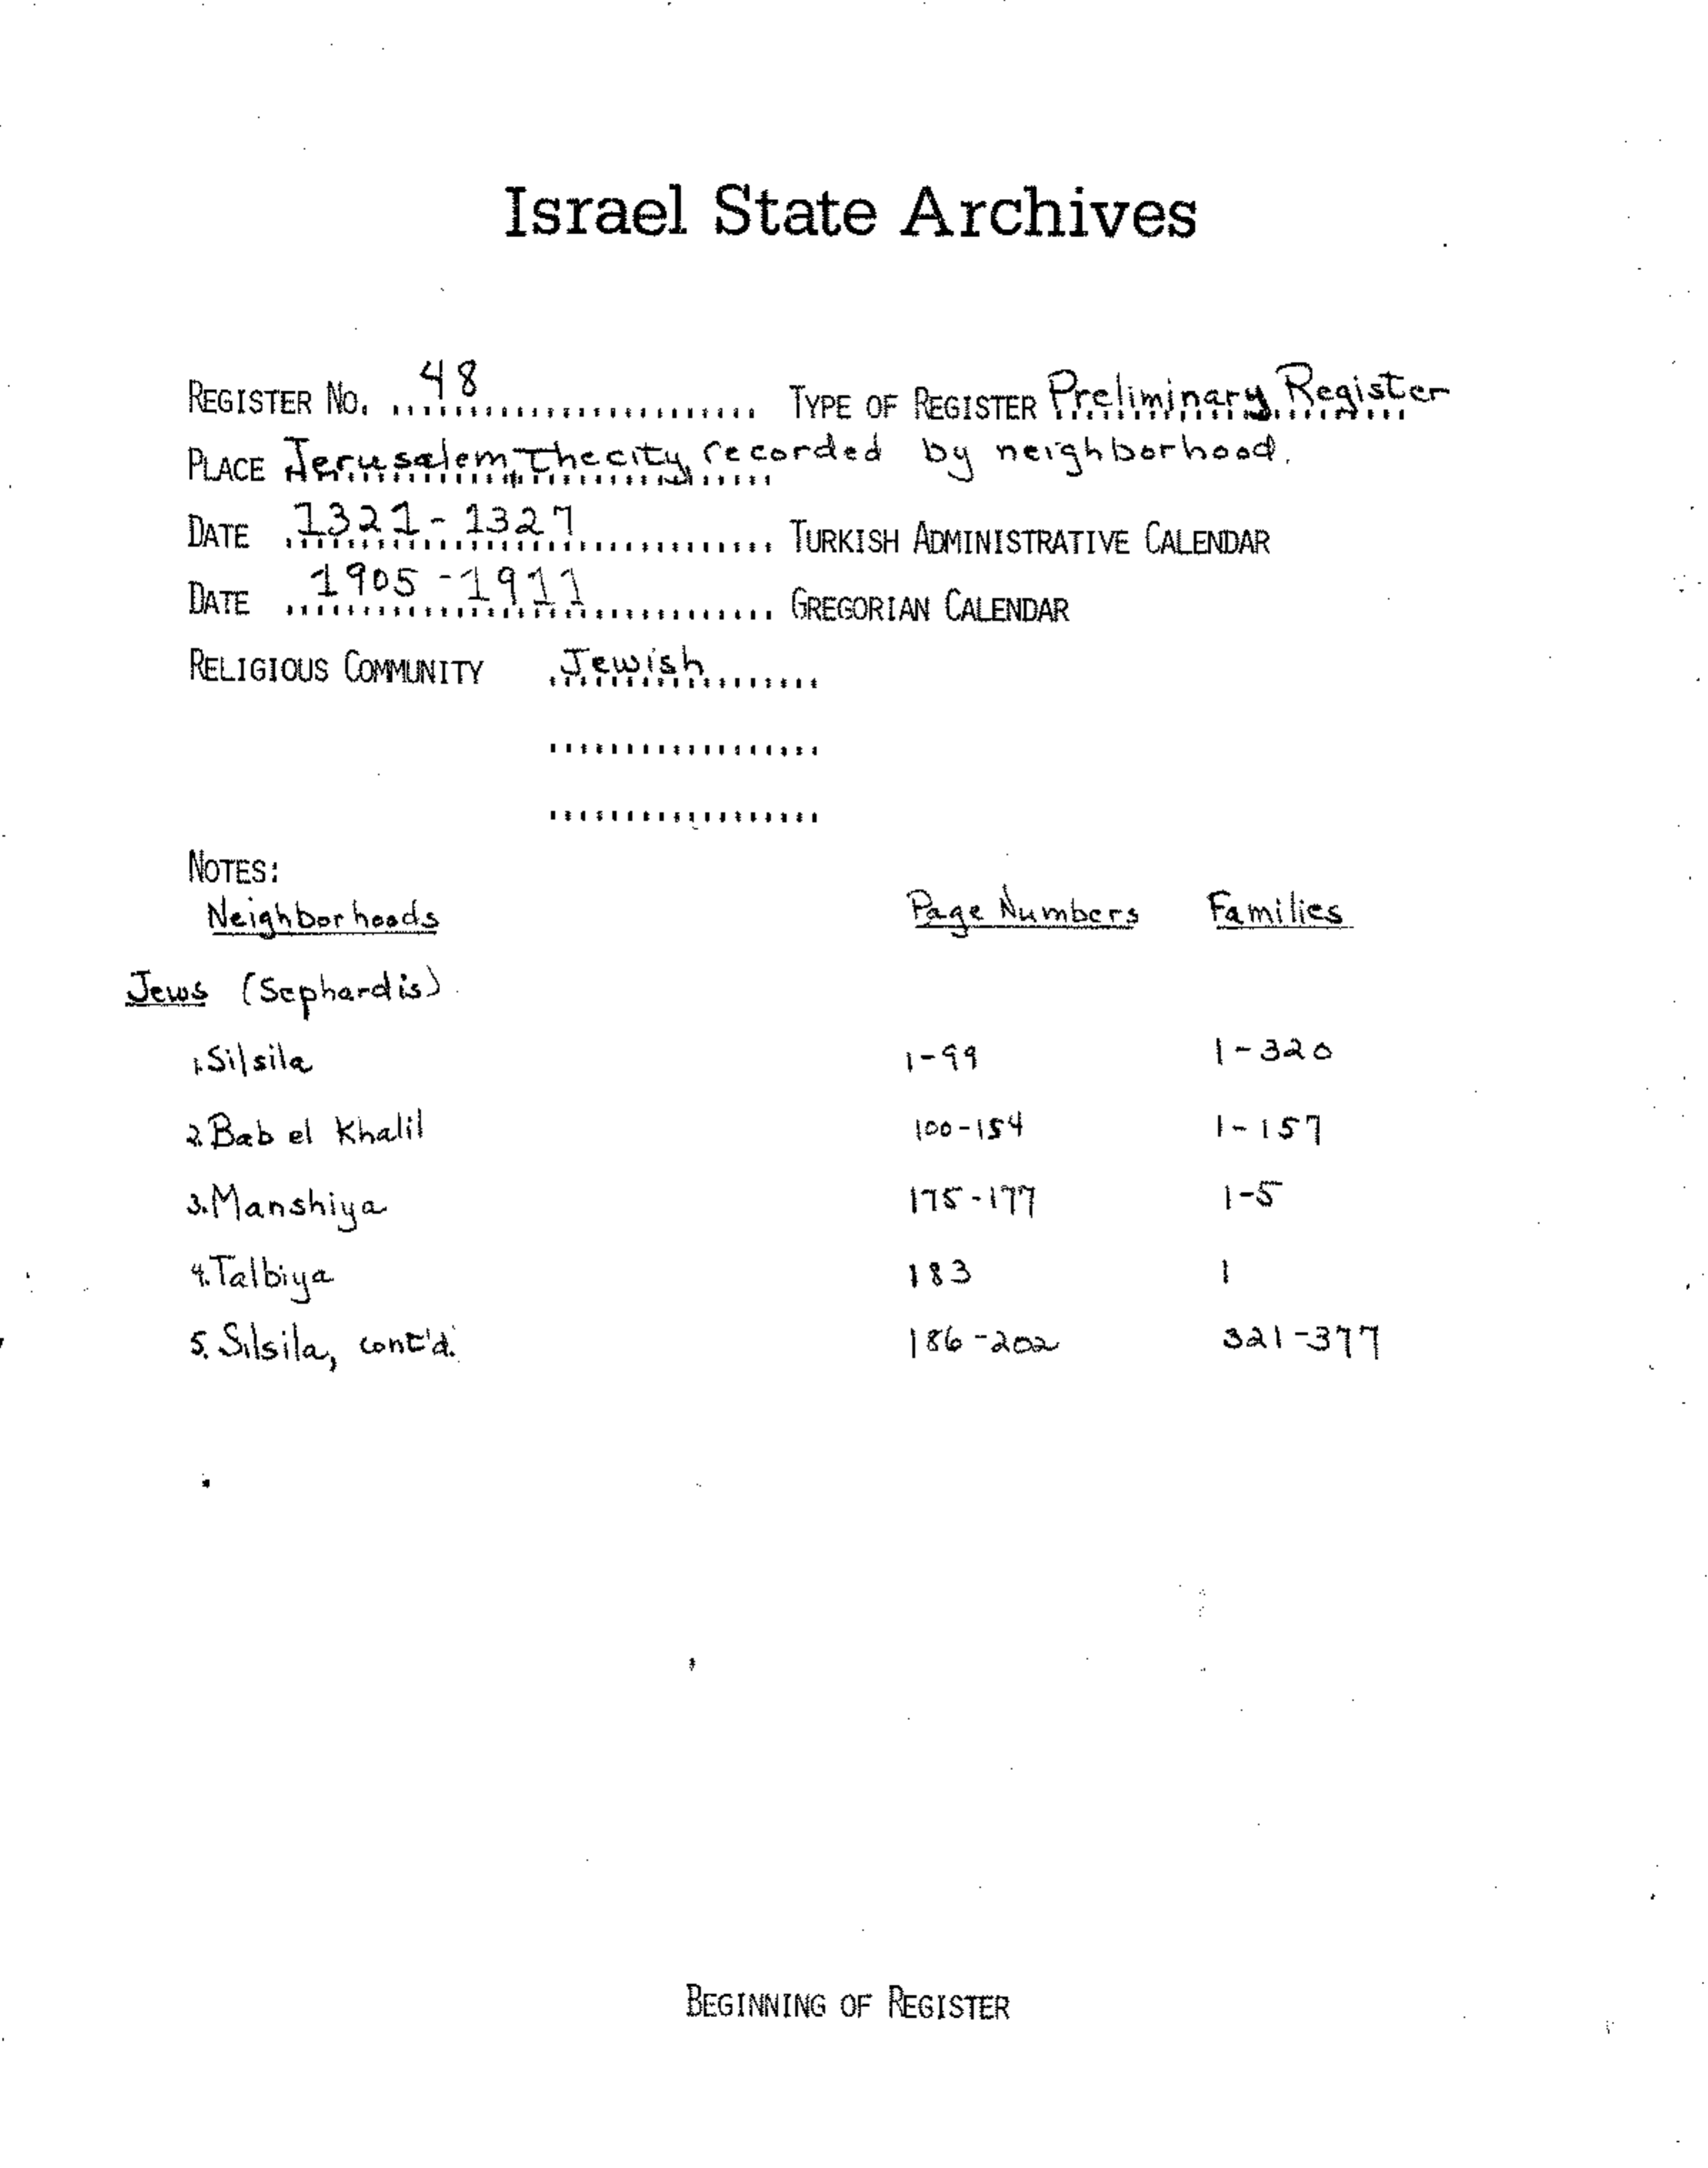 Israel State Archives
REGISTER NO. 48 TYPE OF REGISTER Preliminary Register
PLACE Jerusalem, the city, recorded by neighborhood.
DATE 1321-1327 TURKISH ADMINISTRATIVE CALENDAR
DATE 1905-1911 GREGORIAN CALENDAR
RELIGIOUS COMMUNITY Jewish
NOTES:
Neighborhoods Page Numbers Families
Jews (Sephardis)
1. Silsila 1-99 1-320
2. Bab el Khalil 100-154 1-157
3. Manshiya 175-177 1-5
4. Talbiya 183 1
5. Silsila, cont'd. 186-202 321-377
BEGINNING OF REGISTER